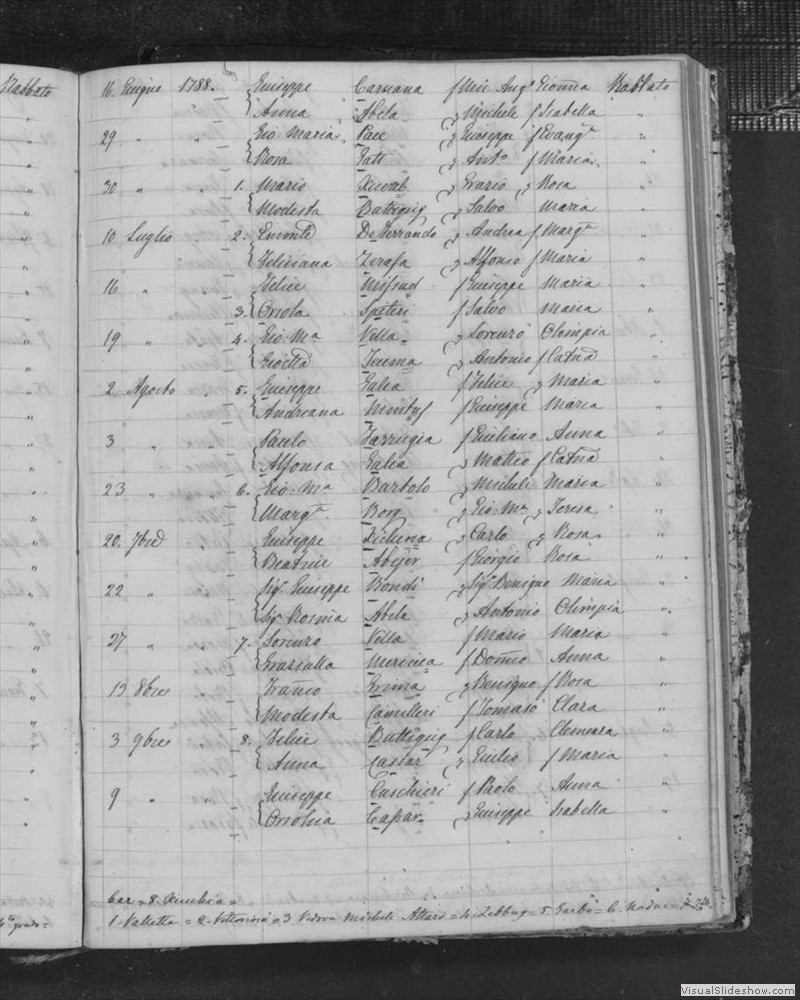 Rabbato 16. Giugno 1788. Giuseppe Caruana f Mro Ang° Gionna Rabbato
" Anna Abela g Michele f Isabella "
" 29 " " Gio Maria Pace g Giuseppe f Evang^a "
" Rosa Gatt g Ant° f Maria "
" 30 " " 1. Mario Xuereb g Grazio g Rosa "
" Modesta Buttigieg g Salvo Maria "
" 10 Luglio " 2. DeFerrando g Andrea f Marg^a "
" Feliciana Zerafa g Alfonso f Maria "
" 16 " " Felice Mifsud f Giuseppe Maria "
" 3. Orsola Spiteri f Salvo Maria "
" 19 " " 4. Gio M^a Vella g Lorenzo Olimpia "
" Teuma g Antonio f Catna "
" 2 Agosto " 5. Giuseppe Galea f Felice g Maria "
" Andreana Mintuf f Giuseppe Maria "
" 3 " " Paulo Farrugia f Giuliano Anna "
" Alfonsa Galea g Matteo f Catna "
" 23 " " 6. Gio M^a Bartolo g Michele Maria "
" Marg^a Borg g Gio M^a g Teresa "
" 20. 7bre " Giuseppe Xicluna g Carlo g Rosa "
" Beatrice Abejer f Giorgio Rosa "
" 22 " " Sig^r Giuseppe Bondi g Sig^r Benigno Maria "
" Sig^ra Rosina Abela g Antonio Olimpia "
" 27 " " 7. Lorenzo Vella f Mario Maria "
" Graziulla Mercieca f Domco Anna "
" 13 8bre " Franco Grima g Benigno f Rosa "
" Modesta Camilleri f Tomaso Clara "
" 3 9bre " 8. Felice Buttigieg f Carlo Clemenza "
" Anna Cassar g Giulio f Maria "
" 9 " " Giuseppe Cuschieri f Paolo Anna "
" Orsolica Caspar g Giuseppe Isabella "
Car = 8. Xeuchia =
grado = 1. Valletta = 2. Vittoriosa = 3 Vedova Michele Attard = 4. Zebbug = 5. Garbo = 6. Nadur =
VisualSlideshow.com